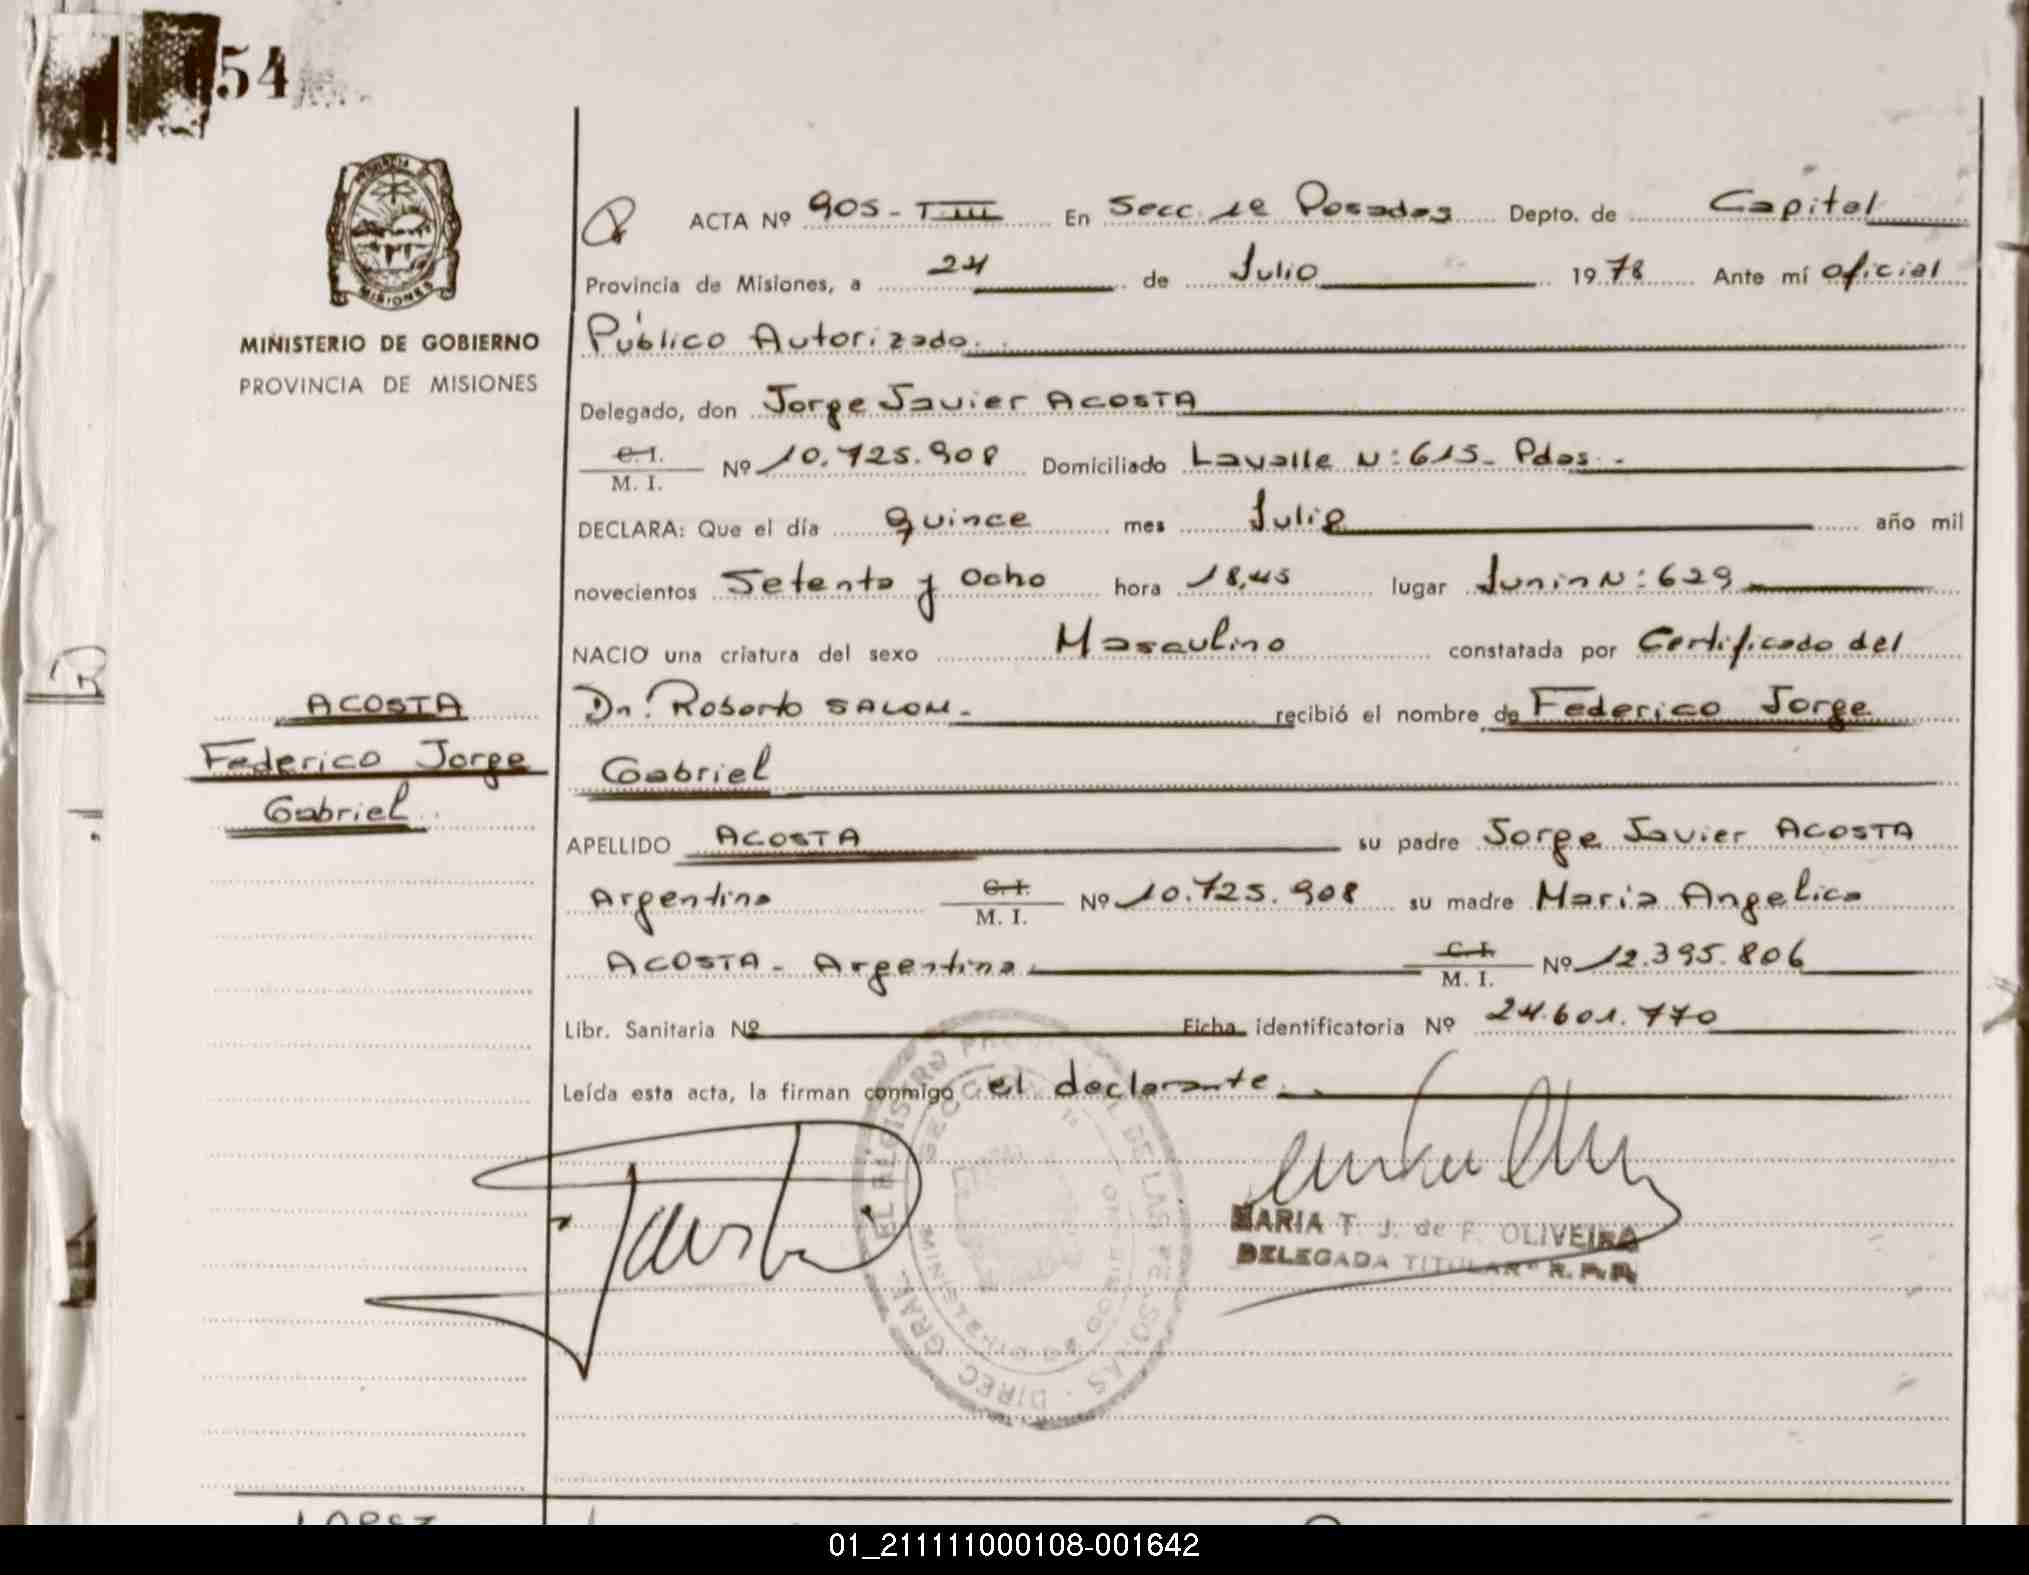 54
MINISTERIO DE GOBIERNO
PROVINCIA DE MISIONES
ACTA Nº 905 - T III En Secc. 1ª Posadas Depto. de Capital
Provincia de Misiones, a 24 de Julio 1978 Ante mí oficial
Público Autorizado.
Delegado, don Jorge Javier ACOSTA
C. I.
M. I. Nº 10.725.908 Domiciliado Lavalle N: 615 - Pdas.-
DECLARA: Que el día quince mes Julio año mil
novecientos Setenta y Ocho hora 18,45 lugar Junin N: 629
NACIO una criatura del sexo Masculino constatada por Certificado del
Dr. Roberto SALOM.- recibió el nombre de Federico Jorge
Gabriel
APELLIDO ACOSTA su padre Jorge Javier ACOSTA
Argentino C. I.
M. I. Nº 10.725.908 su madre Maria Angelica
ACOSTA - Argentina C. I.
M. I. Nº 12.395.806
Libr. Sanitaria Nº Ficha identificatoria Nº 24.601.770
Leída esta acta, la firman conmigo el declarante.
ACOSTA
Federico Jorge
Gabriel
MARIA T. J. de F. OLIVEIRA
DELEGADA TITULAR R. P. P.
MISIONES
01_211111000108-001642